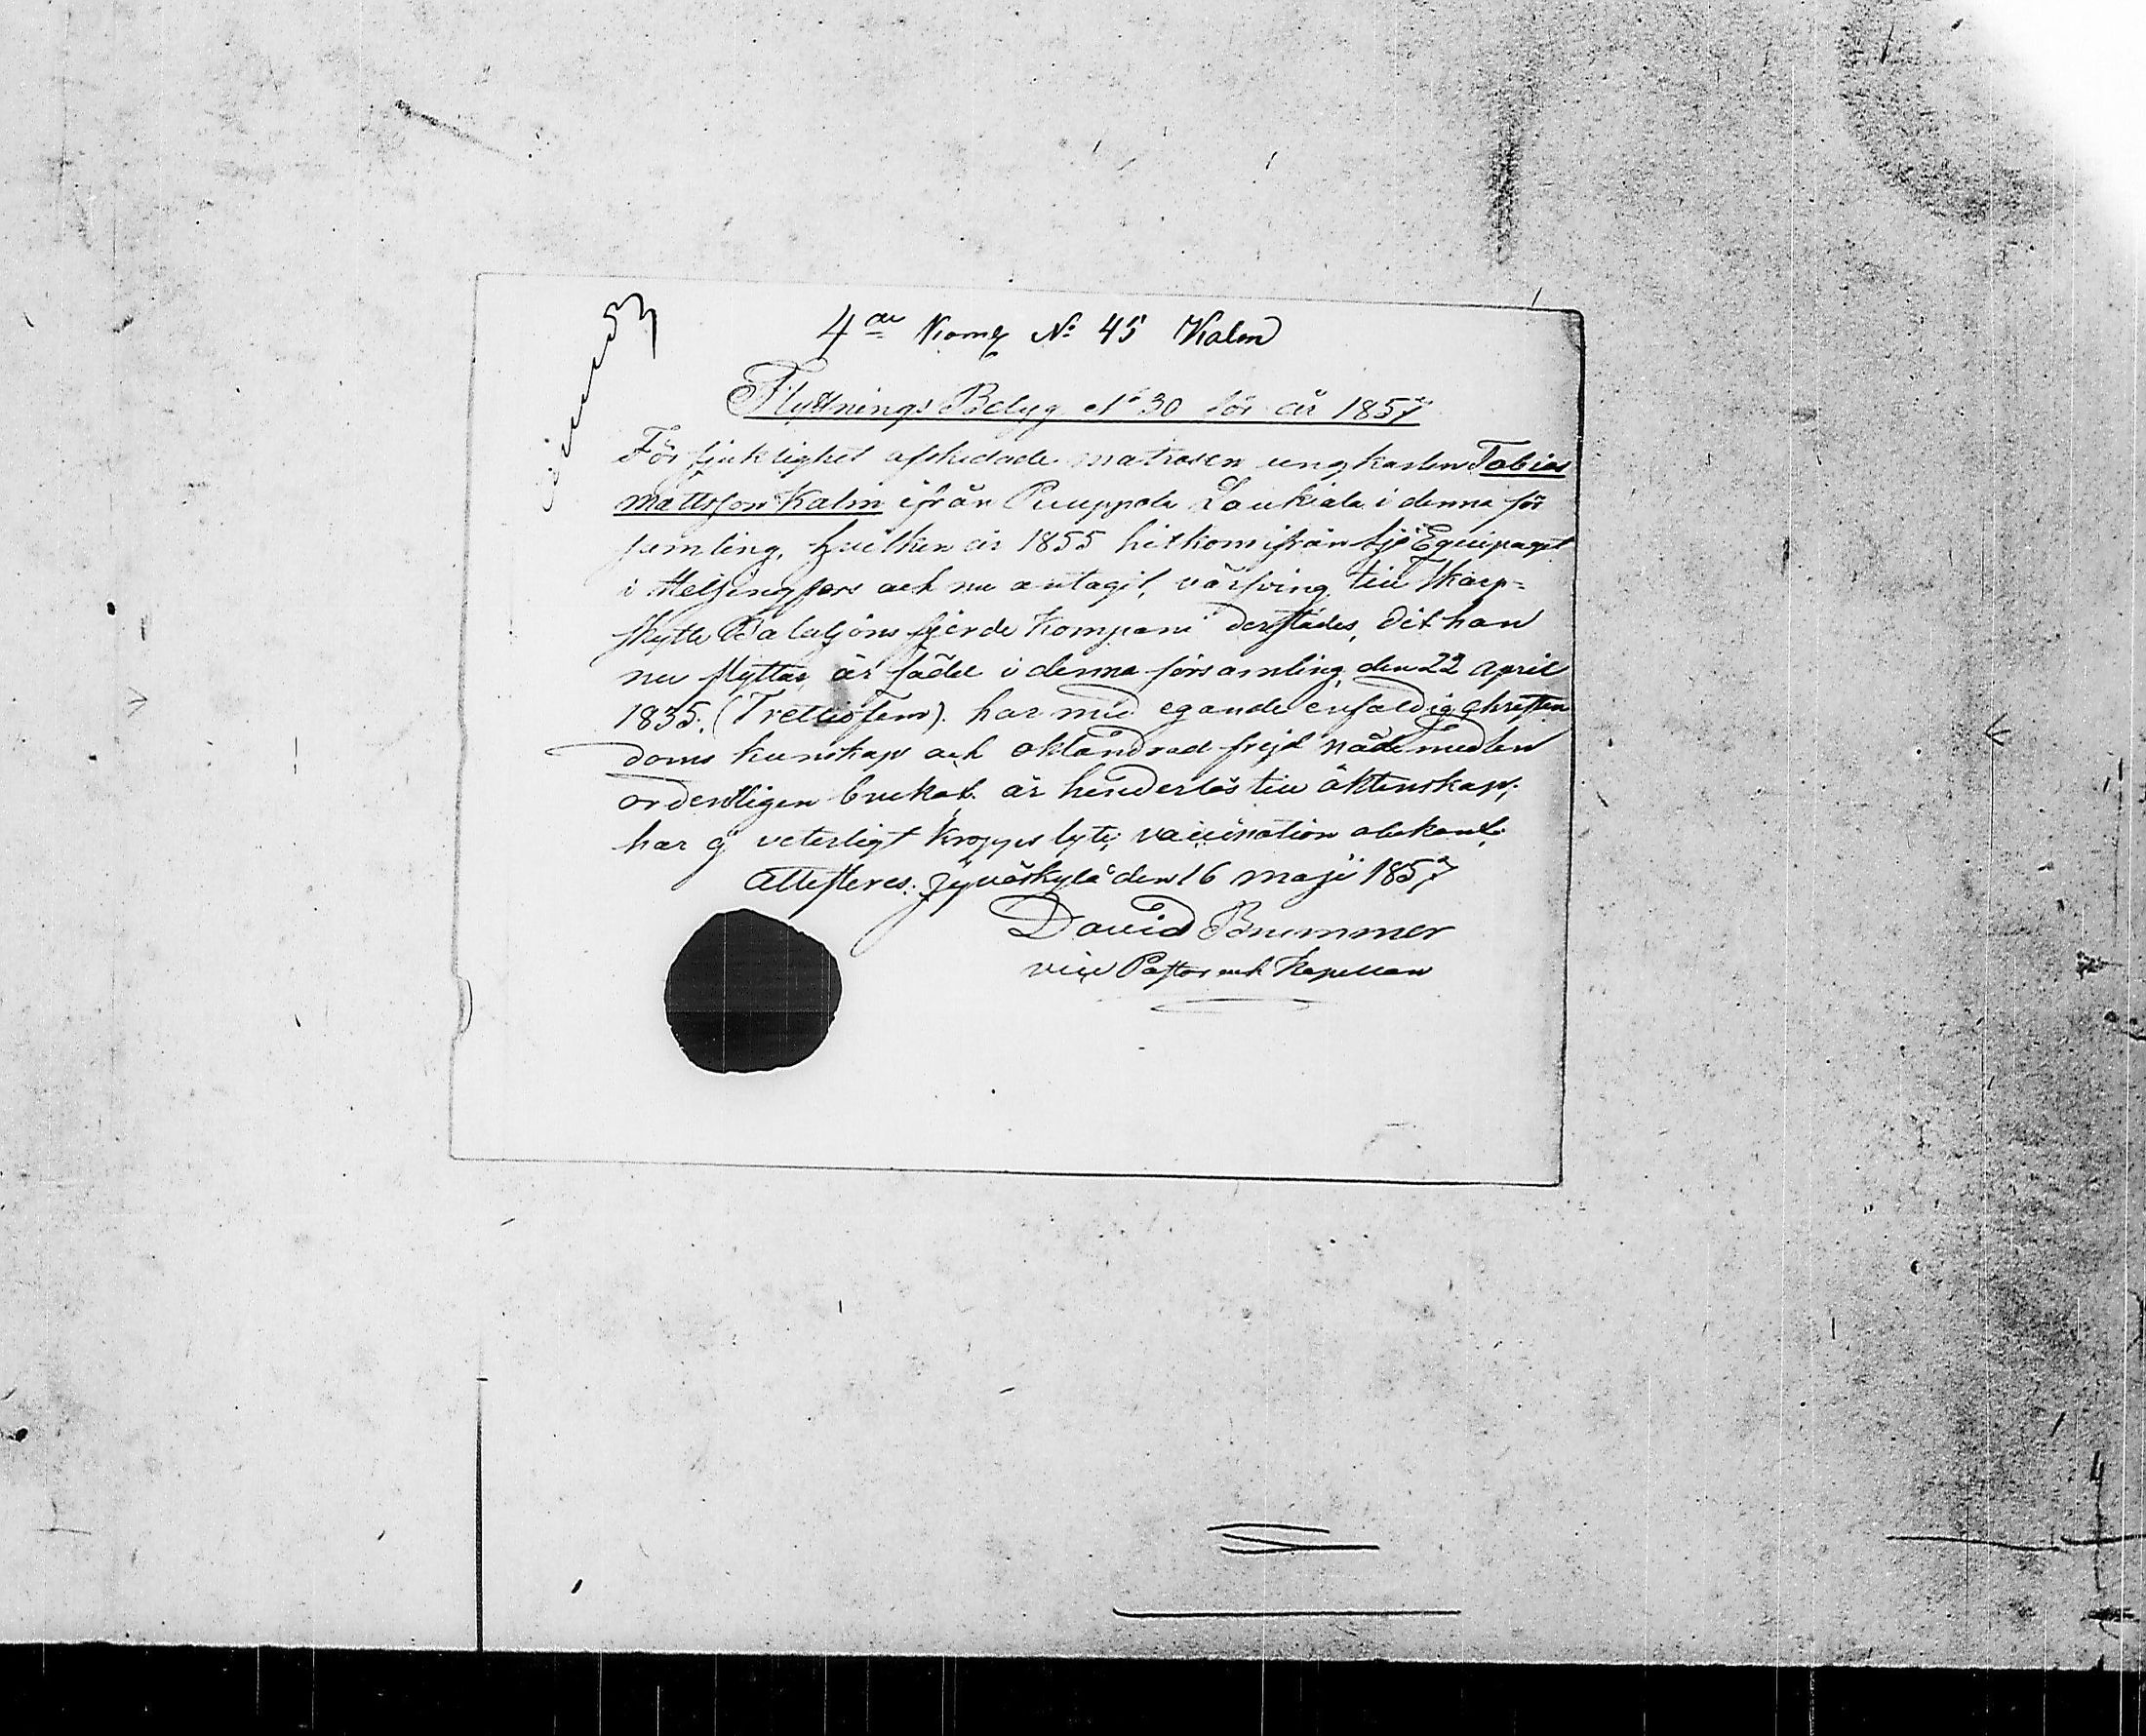 4de Komp No 45 Kalm
Flyttnings Betyg No 30 för år 1857
För sjuklighet afskedade matrosen ungkarlen Tobias
Mattsson Kalm ifrån Puuppola Laukiala i denna för
samling, hvilken år 1855 hitkom ifrån Sjö Equipaget
i Helsingfors och nu antagit värfving till Skarp-
skytte Bataljons fjerde Kompani derstädes, dit han
nu flyttar, är född i denna församling den 22 April
1835. (Trettiofem). har med egande enfaldig Christen
doms kunskap och oklandrad frejd nådemedlen
ordentligen brukat. är hinderlös till äktenskap;
har ej veterligt kroppslyte; vaccination obekant;
Attesteras. Jyväskylä den 16 Maji 1857
David Brummer
vice Pastor och Kapellan